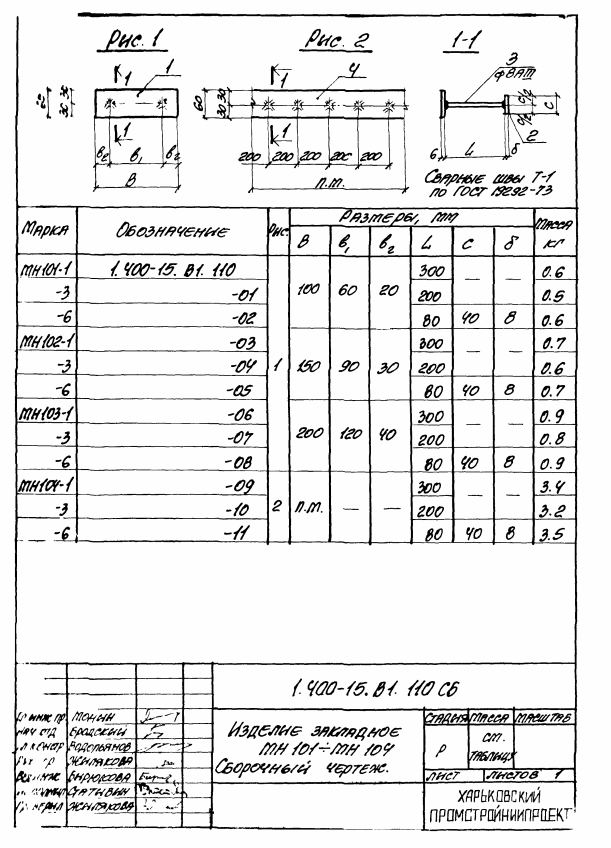 Рис. 1
Рис. 2
1-1
1
1
1
4
1
1
3
ф8АIII
60
30 30
30 30
2
в2 в1 в2
В
200 200 200 200 200
п.м.
6 L δ
с/2
с/2
с
Сварные швы Т-1
по ГОСТ 19292-73
Марка Обозначение Рис Размеры, мм Масса кг
В в1 в2 L с δ
МН101-1 1.400-15.В1.110 1 100 60 20 300 — — 0.6
-3 -01 200 0.5
-6 -02 80 40 8 0.6
МН102-1 -03 150 90 30 300 — — 0.7
-3 -04 200 0.6
-6 -05 80 40 8 0.7
МН103-1 -06 200 120 40 300 — — 0.9
-3 -07 200 0.8
-6 -08 80 40 8 0.9
МН104-1 -09 2 п.м. — — 300 — — 3.4
-3 -10 200 3.2
-6 -11 80 40 8 3.5
1.400-15.В1.110 СБ
Изделие закладное
МН 101÷МН 104
Сборочный чертеж.
Стадия Масса Масштаб
Р см. таблицу
Лист Листов 1
Харьковский
Промстройниипроект
инж. пр. Монин
Нач отд Бродский
Жилякова
Вед инж Бирюкова
Жилякова